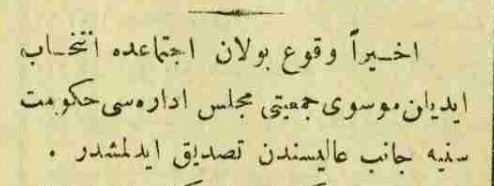 اخيراً وقوع بولان اجتماعده انتخاب
ايديان موسوى جمعيتى مجلس اداره‌سى حكومت
سنيه جانب عاليسندن تصديق ايدلمشدر .